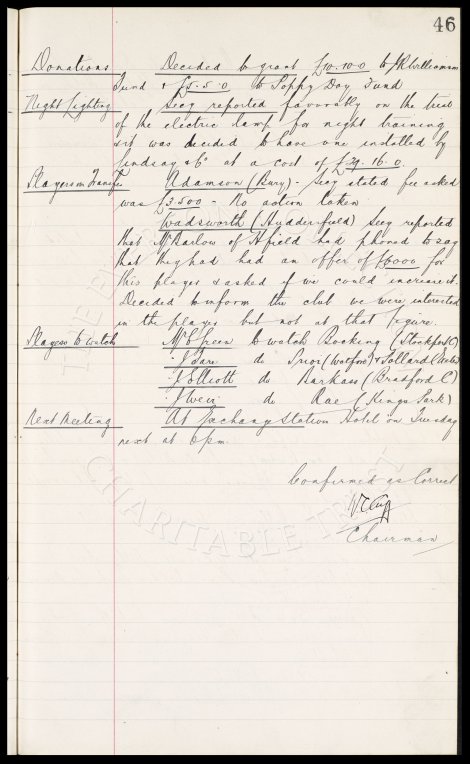 46
Donations Decided to grant £10.10.0 to J R Williamson
Fund & £5.5.0 to Poppy Day Fund
Night Lighting Secy reported favorably on the trial
of the electric lamp for night training
& it was decided to have one installed by
Lindsay & Co at a cost of £29.16.0.
Players on Transfer Adamson (Bury) - Secy stated fee asked
was £3.500 - No action taken
Wadsworth (Huddersfield) Secy reported
that Mr Barlow of H'field had phoned to say
that they had had an offer of £6000 for
this player & asked if we could increase it.
Decided to inform the club we were interested
in the player but not at that figure.
Players to Watch Mr C Green to watch Bocking (Stockport C)
" J Dare do Prior (Watford) & Pollard (Exeter)
" J Elliott do Barkas (Bradford C)
" J Weir do Rae (Kings Park)
Next Meeting At Exchange Station Hotel on Tuesday
next at 6pm.
Confirmed as Correct
Chairman
CHARITABLE TRUST